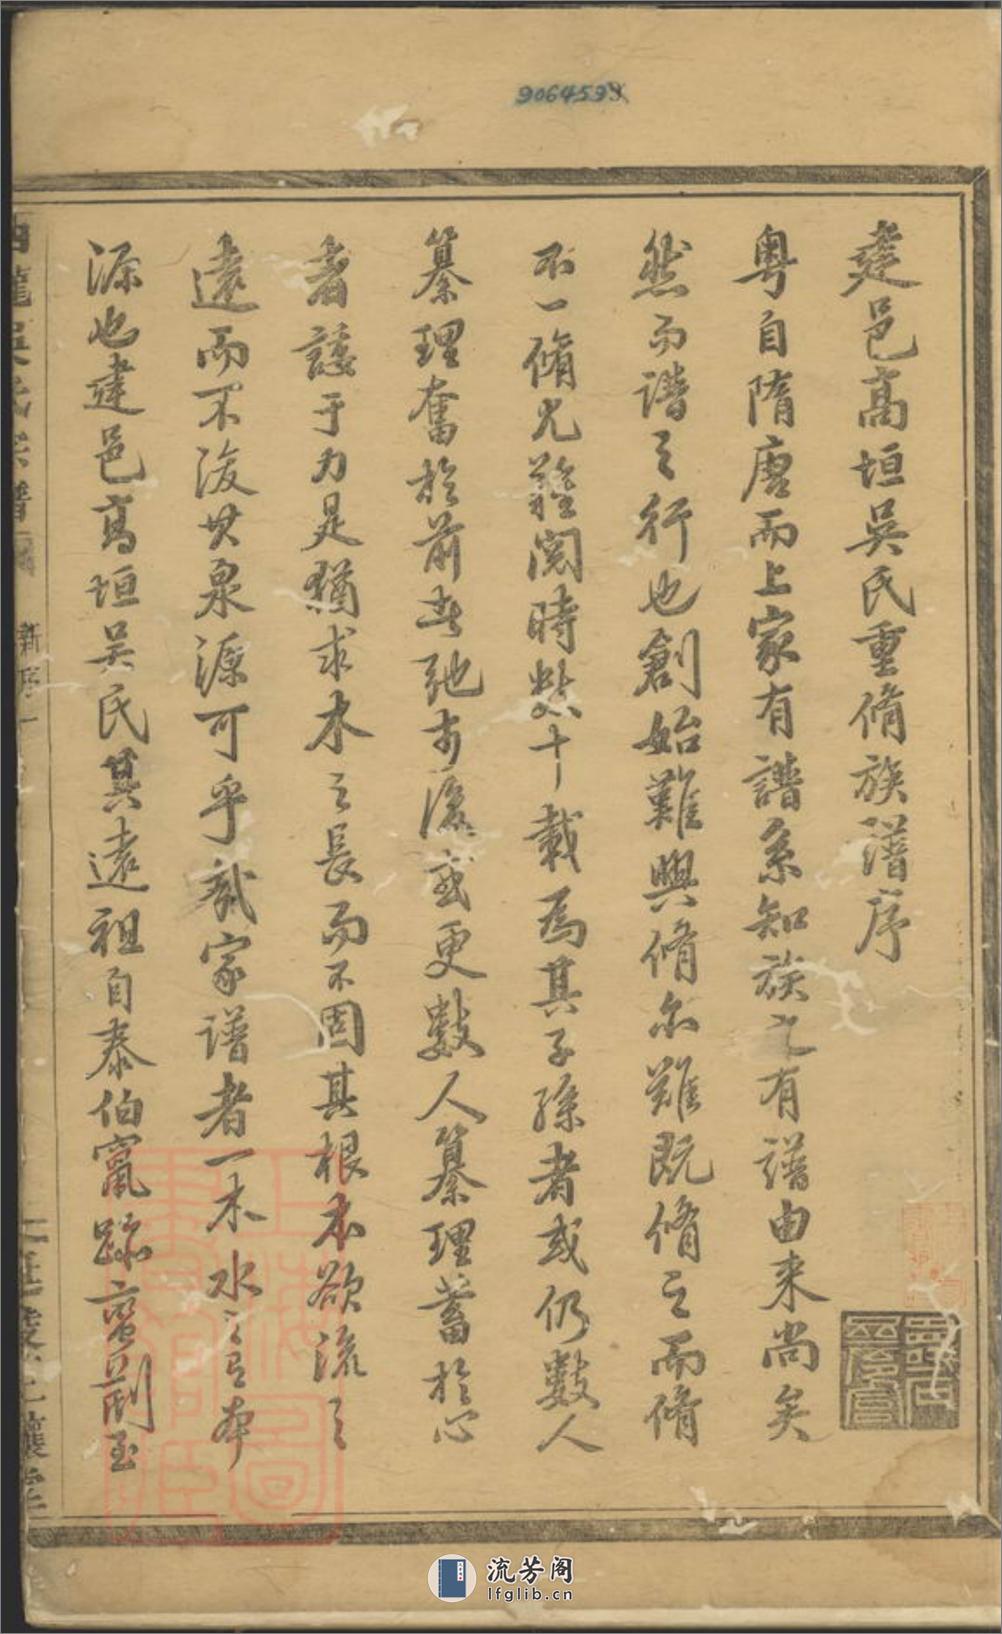 9064599
建邑高垣吳氏重脩族譜序
粵自隋唐而上家有譜系知族之有譜由來尚矣
然而譜之行也創始難興脩尔難既脩之而脩
不一脩尤難閱時數十載為其子孫者或仍數人
纂理奮於前者弛于後或更數人纂理蓄於心
者謐于力是猶求木之長而不固其根本欲流之
遠而不浚其泉源可乎哉家譜者一木水之有本
源也建邑高垣吳氏其遠祖自泰伯竄跡蠻荊至
龍吳氏宗譜
新序一
三讓堂
上海圖書館藏
流芳阁
lfglib.cn